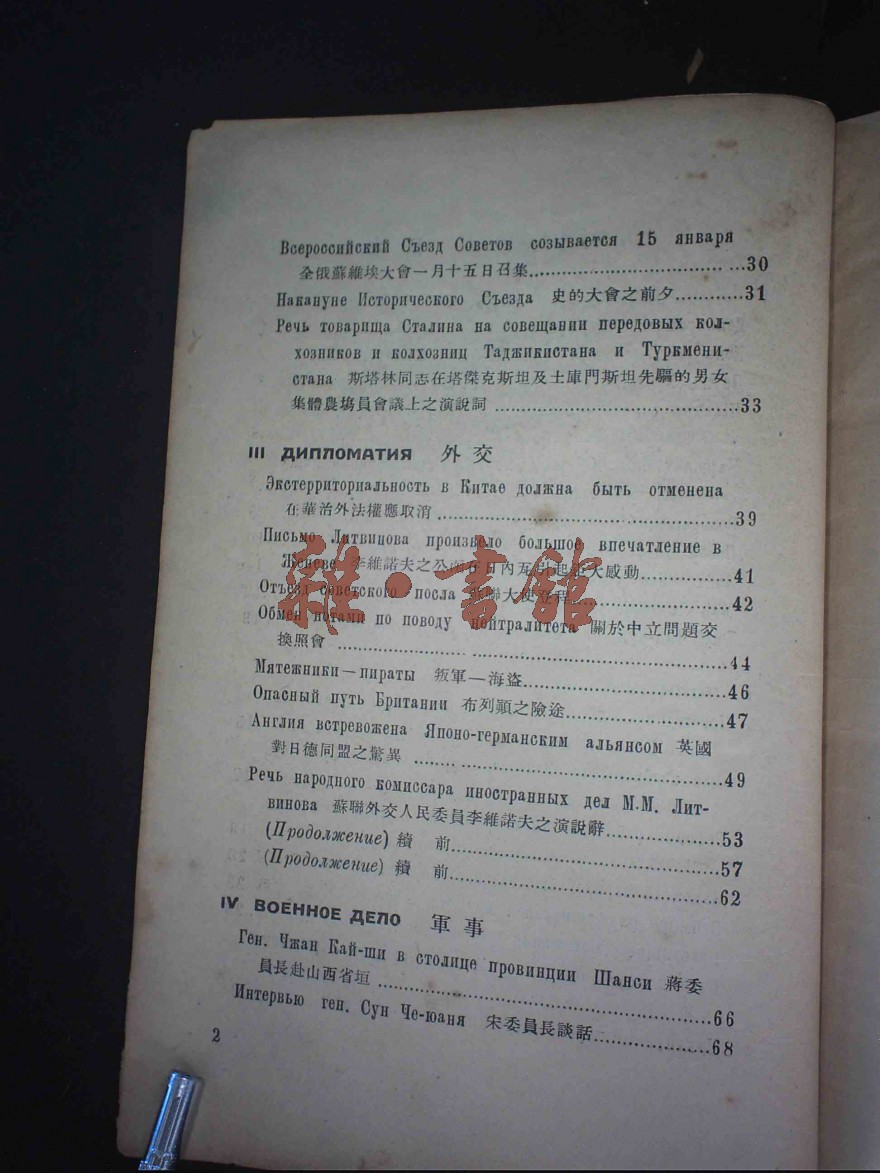 Всероссийский Съезд Советов созывается 15 января
全俄蘇維埃大會一月十五日召集..............................30
Накануне Исторического Съезда 史的大會之前夕............31
Речь товарища Сталина на совещании передовых кол-
хозников и колхозниц Таджикистана и Туркмени-
стана 斯塔林同志在塔傑克斯坦及土庫門斯坦先驅的男女
集體農場員會議上之演說詞 ..................................33
III ДИПЛОМАТИЯ 外交
Экстерриториальность в Китае должна быть отменена
在華治外法權應取消 ..........................................39
Письмо Литвинова произвело большое впечатление в
Женеве 李維諾夫之公函在日內瓦引起極大感動............41
Отъезд советского посла 蘇聯大使登程......................42
Обмен нотами по поводу нейтралитета 關於中立問題交
換照會 .......................................................44
Мятежники—пираты 叛軍—海盜.............................46
Опасный путь Британии 布列顛之險途......................47
Англия встревожена Японо-германским альянсом 英國
對日德同盟之驚異 ............................................49
Речь народного комиссара иностранных дел М.М. Лит-
винова 蘇聯外交人民委員李維諾夫之演說辭................53
(Продолжение) 續 前.......................................57
(Продолжение) 續 前.......................................62
IV ВОЕННОЕ ДЕЛО 軍事
Ген. Чжан Кай-ши в столице провинции Шанси 蔣委
員長赴山西省垣 ...............................................66
Интервью ген. Сун Че-юаня 宋委員長談話..................68
2
雜·書館